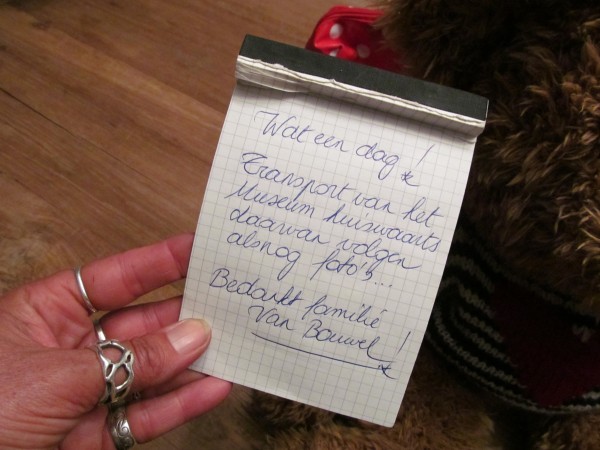 Wat een dag!
Transport van het
Museum huiswaarts
daarvan volgen
alsnog foto's...
Bedankt familie
Van Bouwel!